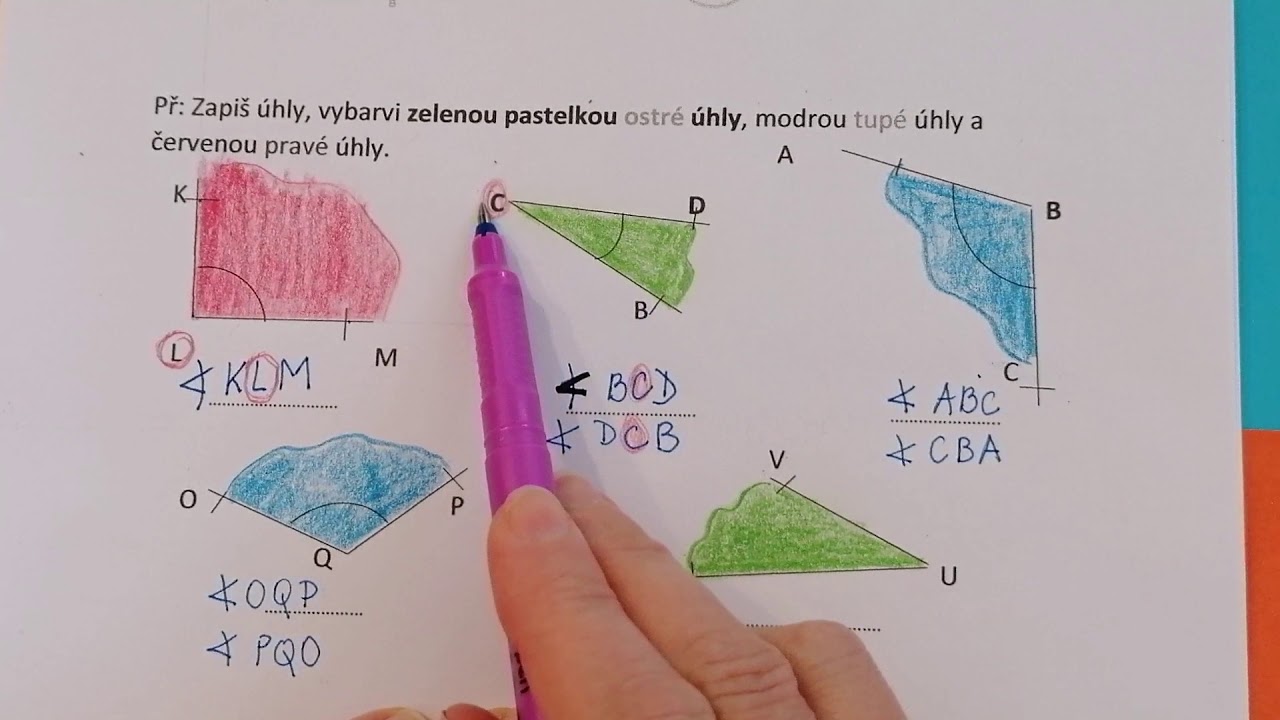 Př: Zapiš úhly, vybarvi zelenou pastelkou ostré úhly, modrou tupé úhly a
červenou pravé úhly.
K
L
M
∢ KLM
C
D
B
∢ BCD
∢ DCB
A
B
C
∢ ABC
∢ CBA
O
P
Q
∢ OQP
∢ PQO
V
U